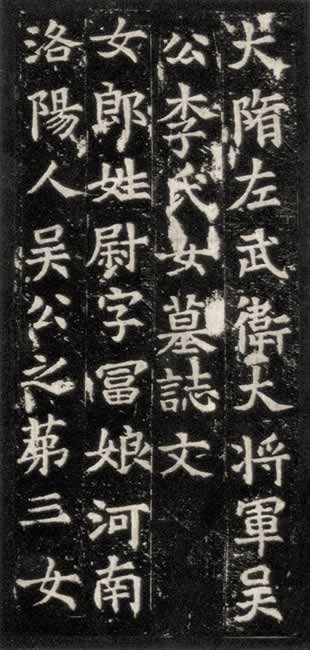 大隋左武衛大将軍吳
公李氏女墓誌文
女郎姓尉字冨娘河南
洛陽人吳公之苐三女